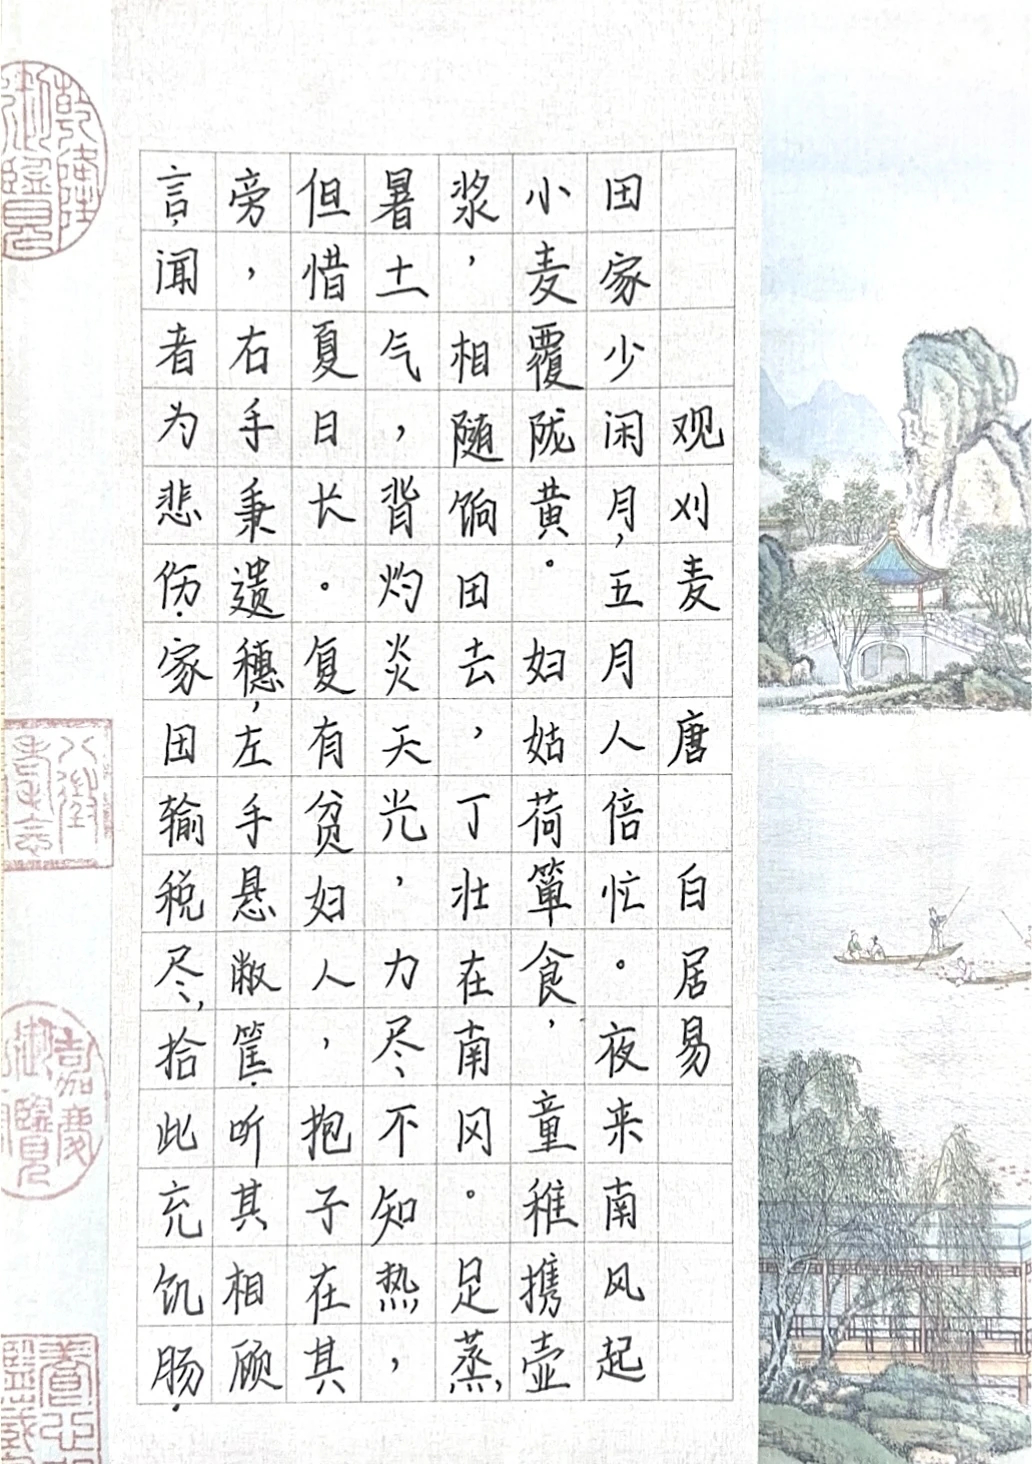 观刈麦 唐 白居易
田家少闲月,五月人倍忙。夜来南风起
小麦覆陇黄。妇姑荷箪食,童稚携壶
浆,相随饷田去,丁壮在南冈。足蒸,
暑土气,背灼炎天光,力尽不知热,
但惜夏日长。复有贫妇人,抱子在其
旁,右手秉遗穗,左手悬敝筐.听其相顾
言,闻者为悲伤.家田输税尽,拾此充饥肠.
乾隆御覽
八徵耄念
嘉慶御覽